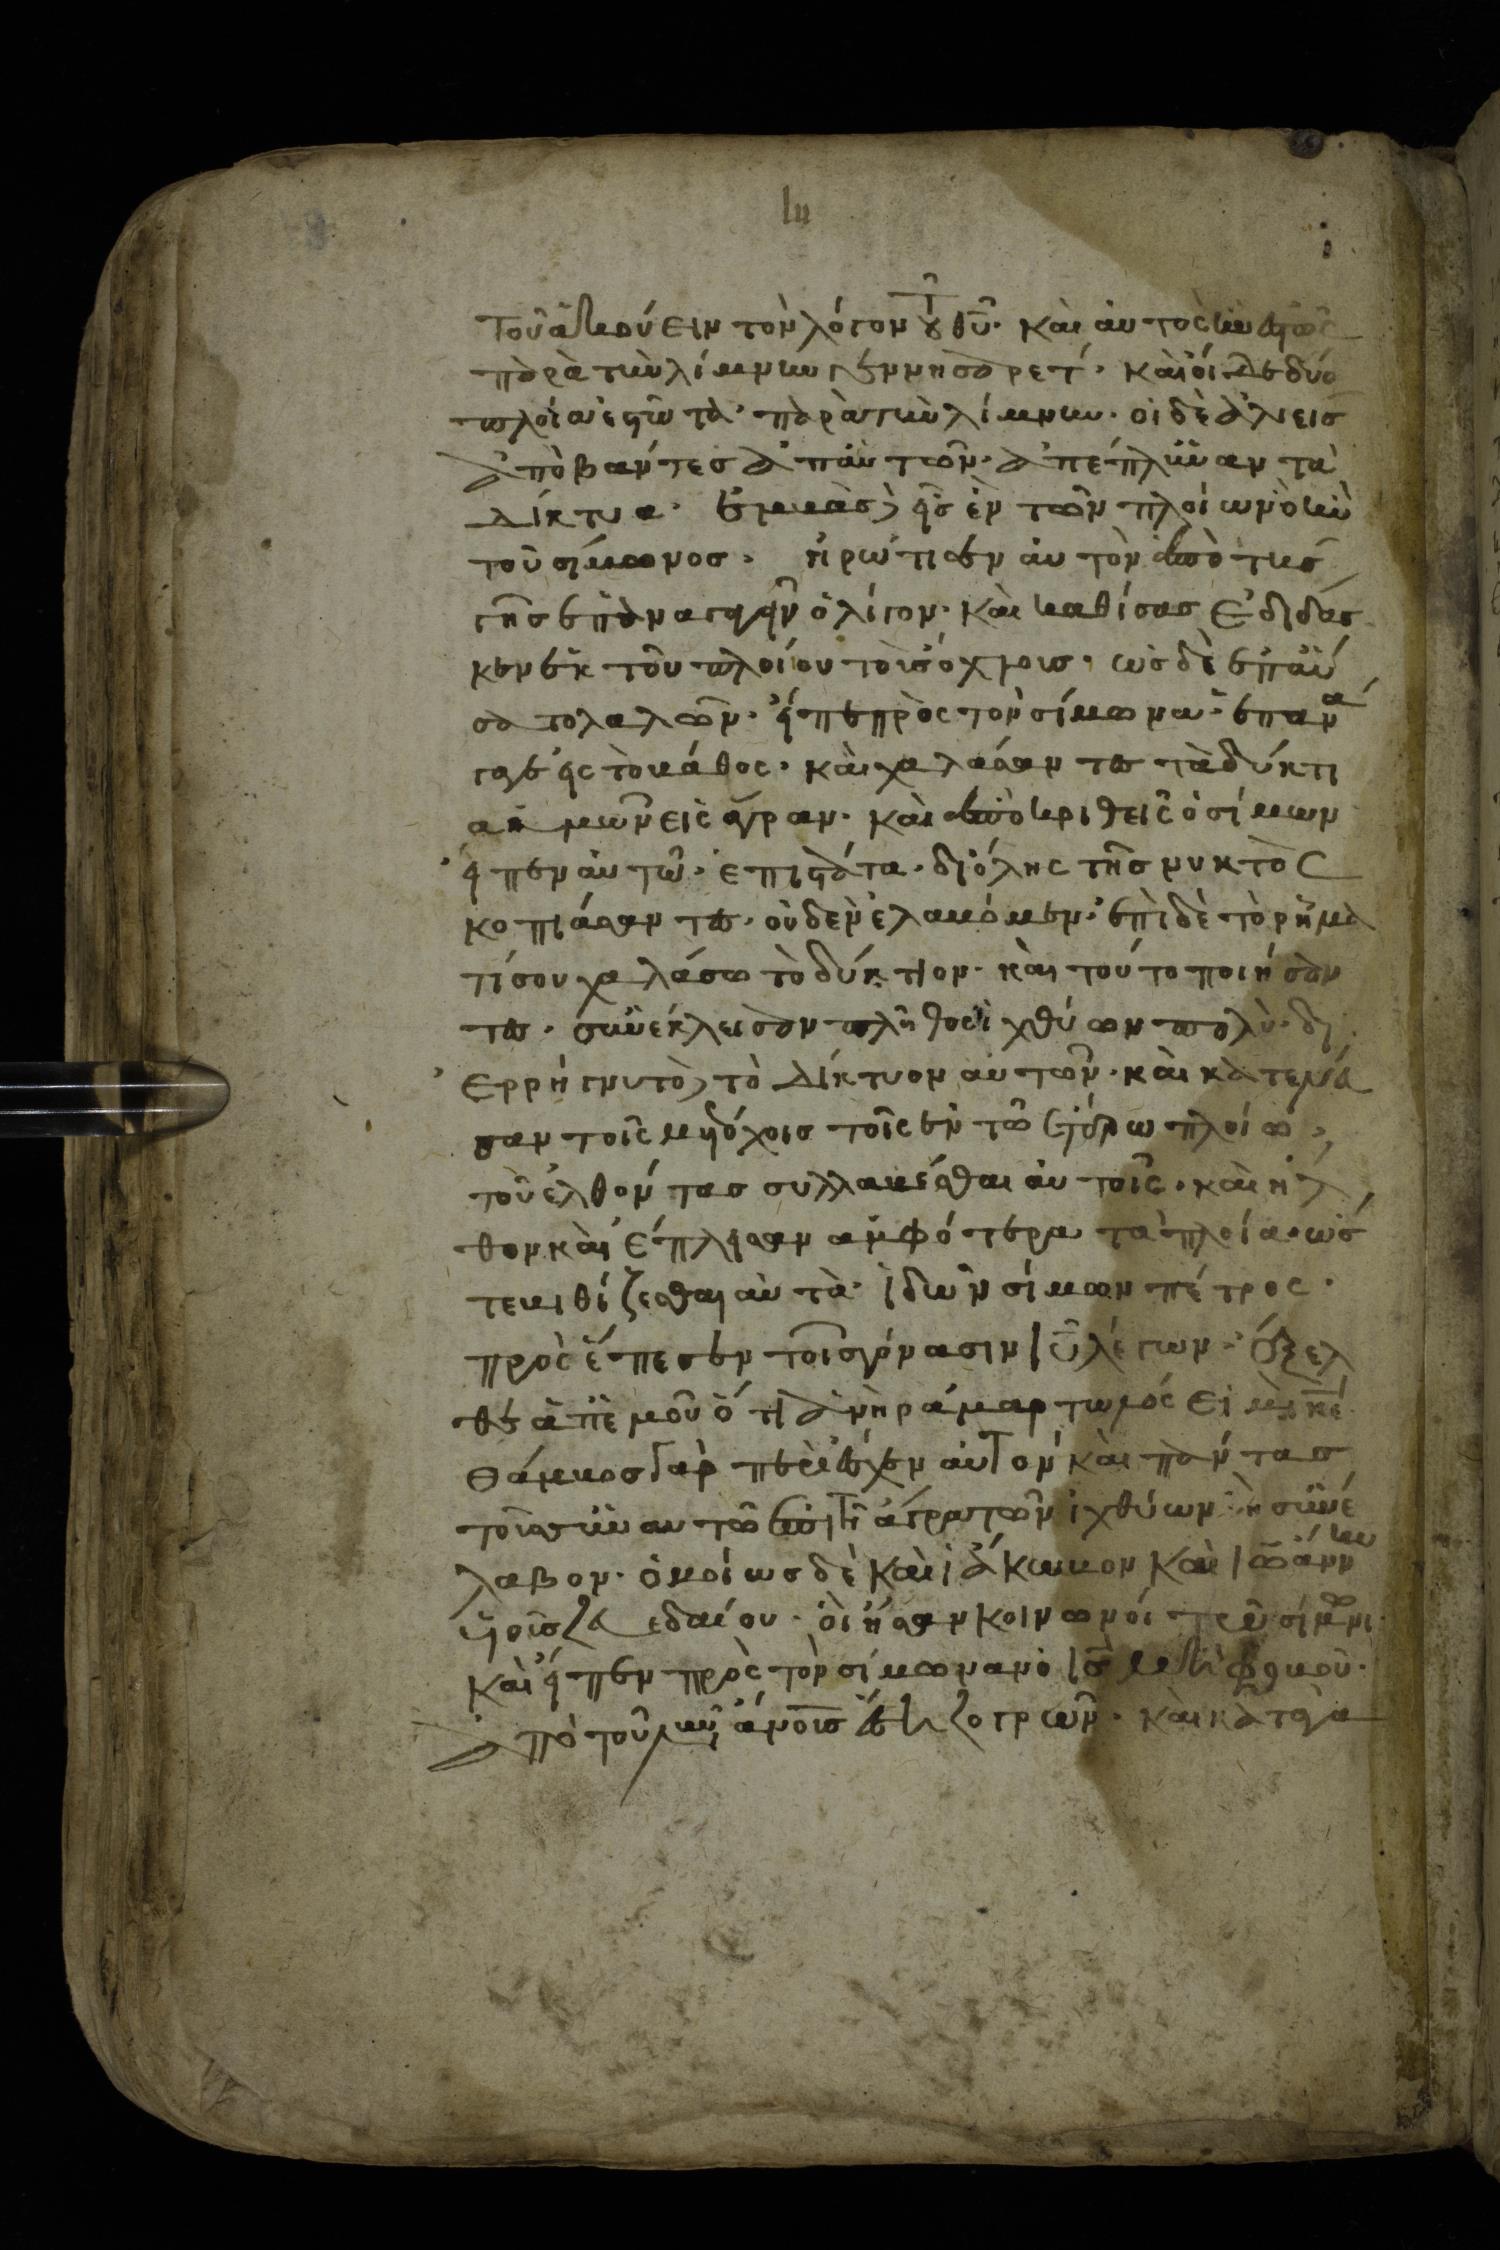 τοῦ ἀκούειν τὸν λόγον τοῦ θῦ· καὶ αὐτὸς ἦν ἑστὼς
παρὰ τὴν λίμνην γεννησαρέτ· καὶ οἶδε δύο
πλοῖα ἑστῶτα· παρὰ τὴν λίμνην· οἱ δὲ ἁλιεῖς
ἀποβάντες ἀπ' αὐτῶν· ἀπέπλυναν τὰ
δίκτυα· ἐμβὰς εἰς ἐν τῶν πλοίων ὃ ἦν
τοῦ σίμωνος· ἠρώτισεν αὐτὸν ἀπὸ τῆς
γῆς ἐπαναγαγεῖν ὀλίγον· καὶ καθίσας ἐδίδασ
κεν ἐκ τοῦ πλοίου τοὺς ὄχλοις· ὡς δὲ ἐπαύ
σατο λαλῶν· εἶπε πρὸς τὸν σίμωνα· ἐπανά
γαγε εἰς τὸ βάθος· καὶ χαλάσαντες τὰ δύκτι
α ἡμῶν εἰς ἄγραν· καὶ ἀποκριθεὶς ὁ σίμων
εἶπεν αὐτῶ· ἐπιστάτα· δι' ὅλης τῆς νυκτὸς
κοπιάσαντες· οὐδὲν ἐλάβομεν· ἐπὶ δὲ τὸ ρῆμα
τί σου χαλάσω τὸ δύκτιον· καὶ τοῦτο ποιήσαν
τες· συνέκλεισαν πλῆθος ἰχθύων πολύ· δι
ερρήγνυτο τὸ δίκτυον αὐτῶν· καὶ κατένευ
σαν τοῖς μετόχοις τοῖς ἐν τῶ ἑτέρω πλοίω·
τοῦ ἐλθόντας συλλαβέσθαι αὐτοῖς· καὶ ἦλ
θον καὶ ἔπλησαν ἀμφότερα τὰ πλοῖα· ὡς
τε βυθίζεσθαι αὐτὰ· ἰδὼν σίμων πέτρος·
προσέπεσεν τοῖς γόνασιν ἰῦ λέγων· ἔξελ
θε ἀπ' ἐμοῦ ὅτι ἀνὴρ ἁμαρτωλός εἰμι κε
θάμβος γὰρ περιέσχεν αὐτὸν καὶ πάντας
τοὺς σὺν αὐτῶ ἐπὶ τῆ ἄγρα τῶν ἰχθύων ἧ συνέ
λαβον· ὁμοίως δὲ καὶ ἰάκωβον καὶ ἰωάννην
υἱοὺς ζεβεδαίου· οἳ ἦσαν κοινωνοί τῶ σίμωνι·
καὶ εἶπεν πρὸς τὸν σίμωνα ὁ ἰς μὴ φοβοῦ·
ἀπὸ τοῦ νῦν ἀνοῖς ἔση ζογρῶν· καὶ καταγα